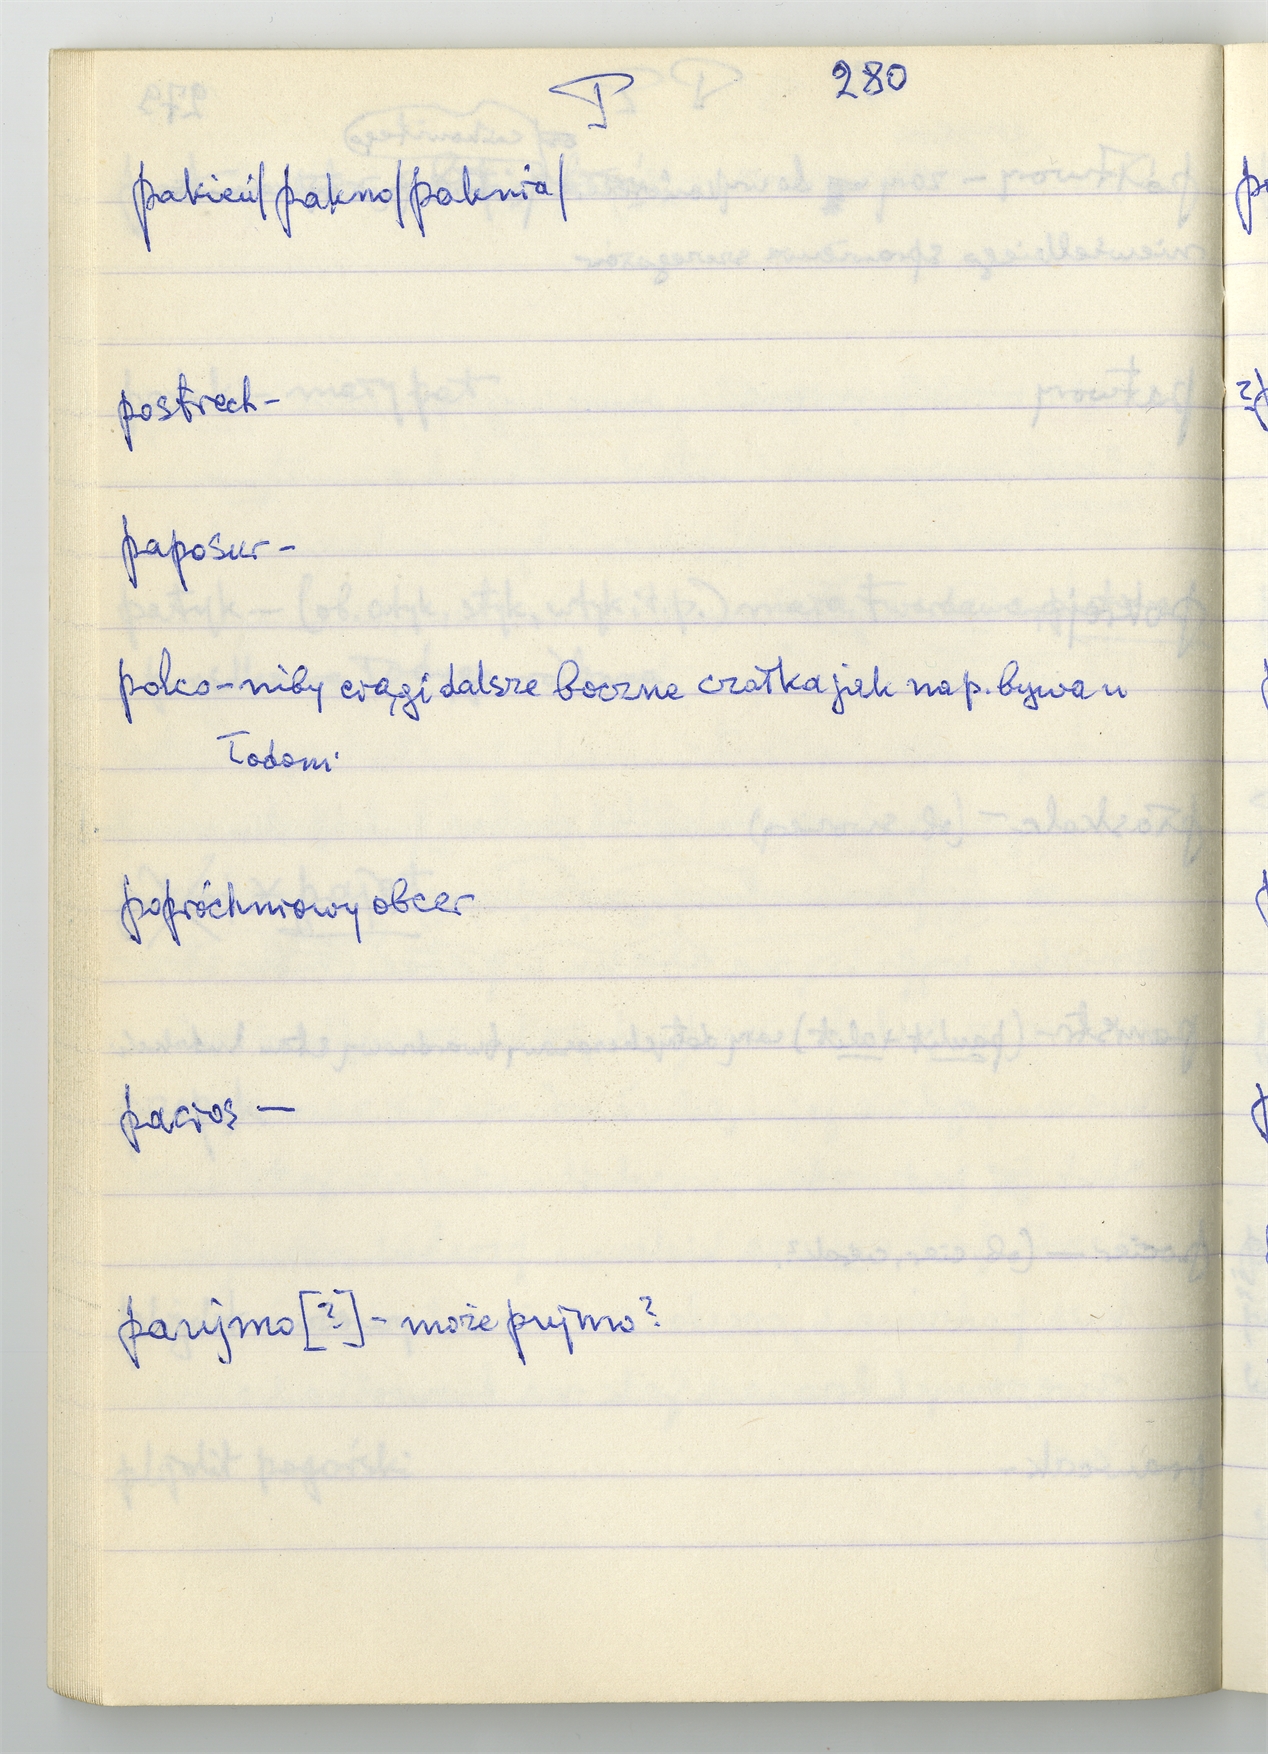 P 280
pakień/pakno/paknia/
postrzech-
paposur-
polco-niby ciągi dalsze boczne czatka jak nap. bywa u
Todoni
popróchniowy obcer
pacios —
parijmo[?]- może prijmo?